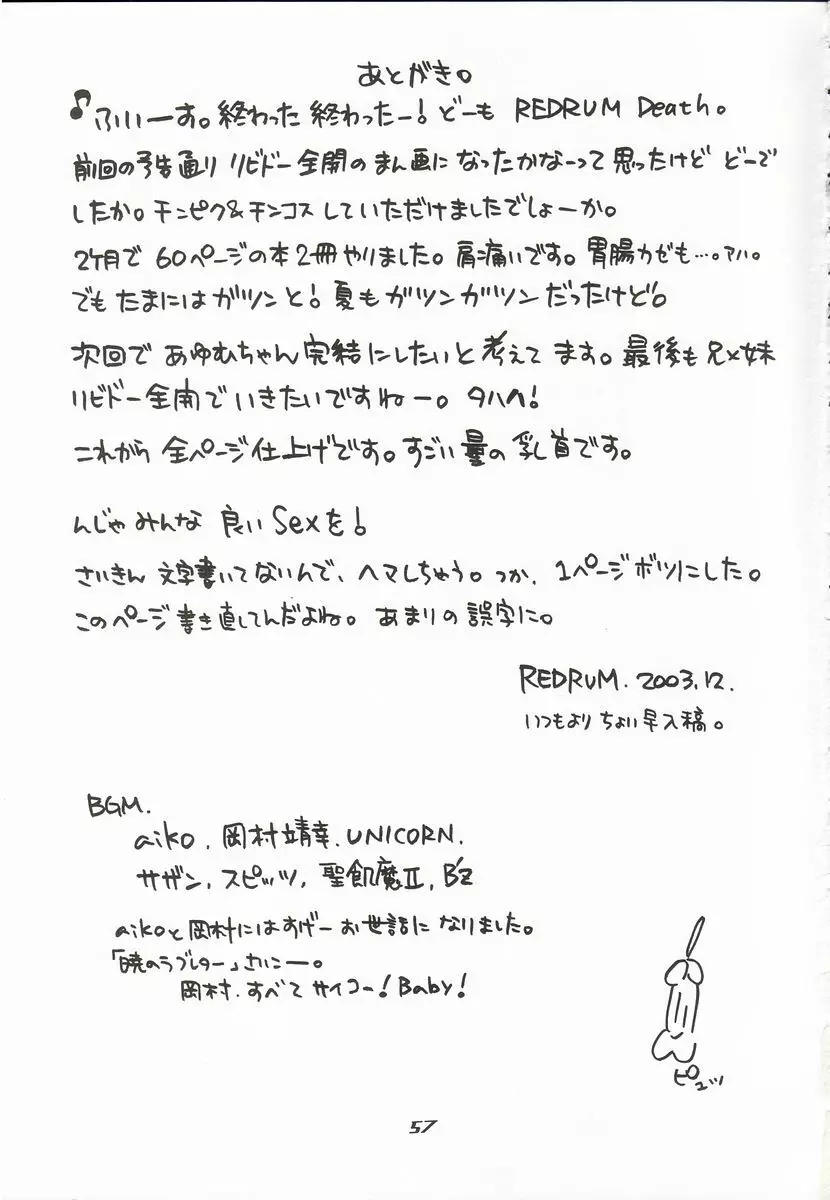 あとがき。
♪ふいーす。終わった終わったー!どーも REDRUM Death。
前回の予告通り リビドー全開のまん画になったかなーって思ったけど どーで
したか。チンピク&チンコスしていただけましたでしょーか。
2ケ月で 60ページの本2冊やりました。肩痛いです。胃腸カゼも…。アハ。
でもたまにはガツンと!夏もガツンガツンだったけど。
次回で あゆむちゃん完結にしたいと考えてます。最後も兄×妹
リビドー全開でいきたいですねー。タハハ!
これから全ページ仕上げです。すごい量の乳首です。
んじゃみんな 良いSexを!
さいきん 文字書いてないんで、ヘマしちゃう。つか、1ページボツにした。
このページ書き直してんだよね。あまりの誤字に。
REDRUM. 2003.12.
いつもより ちょい早入稿。
BGM.
aiko, 岡村靖幸, UNICORN,
サザン, スピッツ, 聖飢魔II, B'z
aikoと岡村にはすげーお世話になりました。
「暁のラブレター」さいこー。
岡村、すべてサイコー!Baby!
ピュッ
57